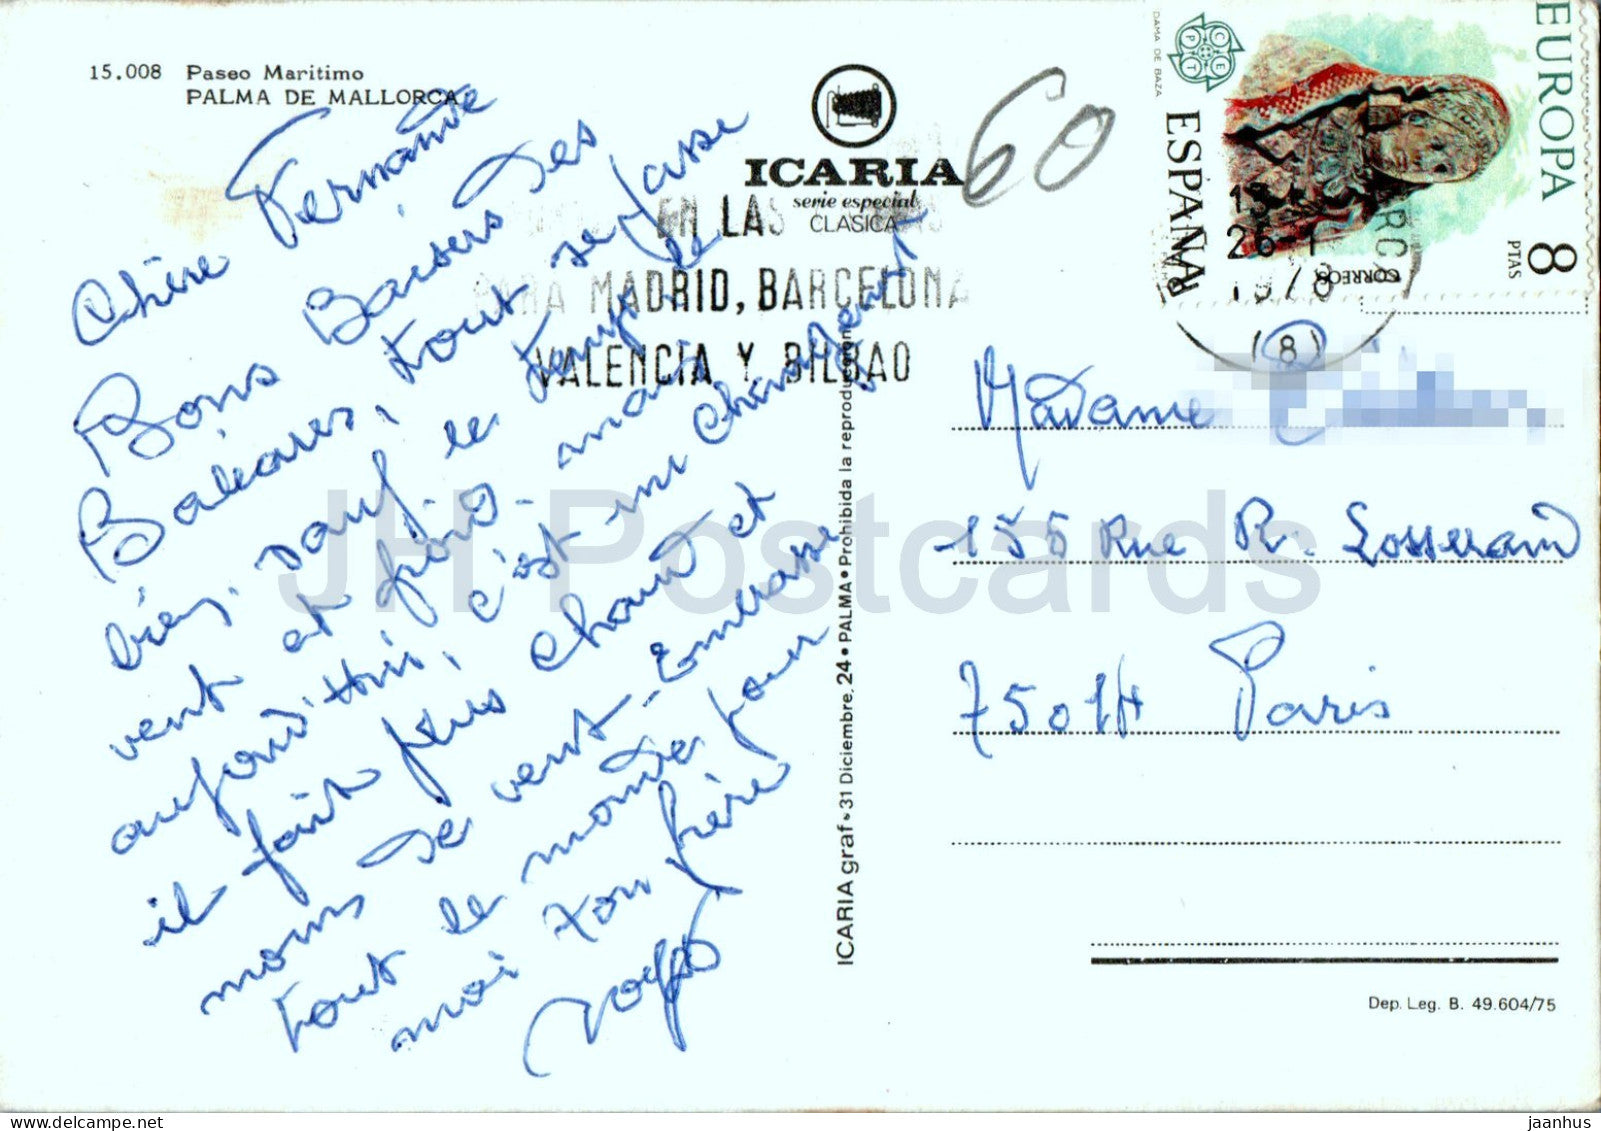 15.008 Paseo Marítimo
PALMA DE MALLORCA
ICARIA
serie especial
CLASICA
60
EN LAS
PARA MADRID, BARCELONA
VALENCIA Y BILBAO
DAMA DE BAZA
CEPT
ESPAÑA
EUROPA
8
PTAS
CORREOS
26-1
1978
(8)
Chère Fernande
Bons Baisers des
Baléares, tout se passe
bien, sauf le temps de
vent et froid - mais
aujourd'hui, c'est un changement
il fait plus chaud et
moins de vent - Embrasse
tout le monde pour
moi ton frère
Madame
155 Rue R. Losserand
75014 Paris
ICARIA graf • 31 Diciembre, 24 • PALMA • Prohibida la reproducción
Dep. Leg. B. 49.604/75
JH Postcards
jaanhus